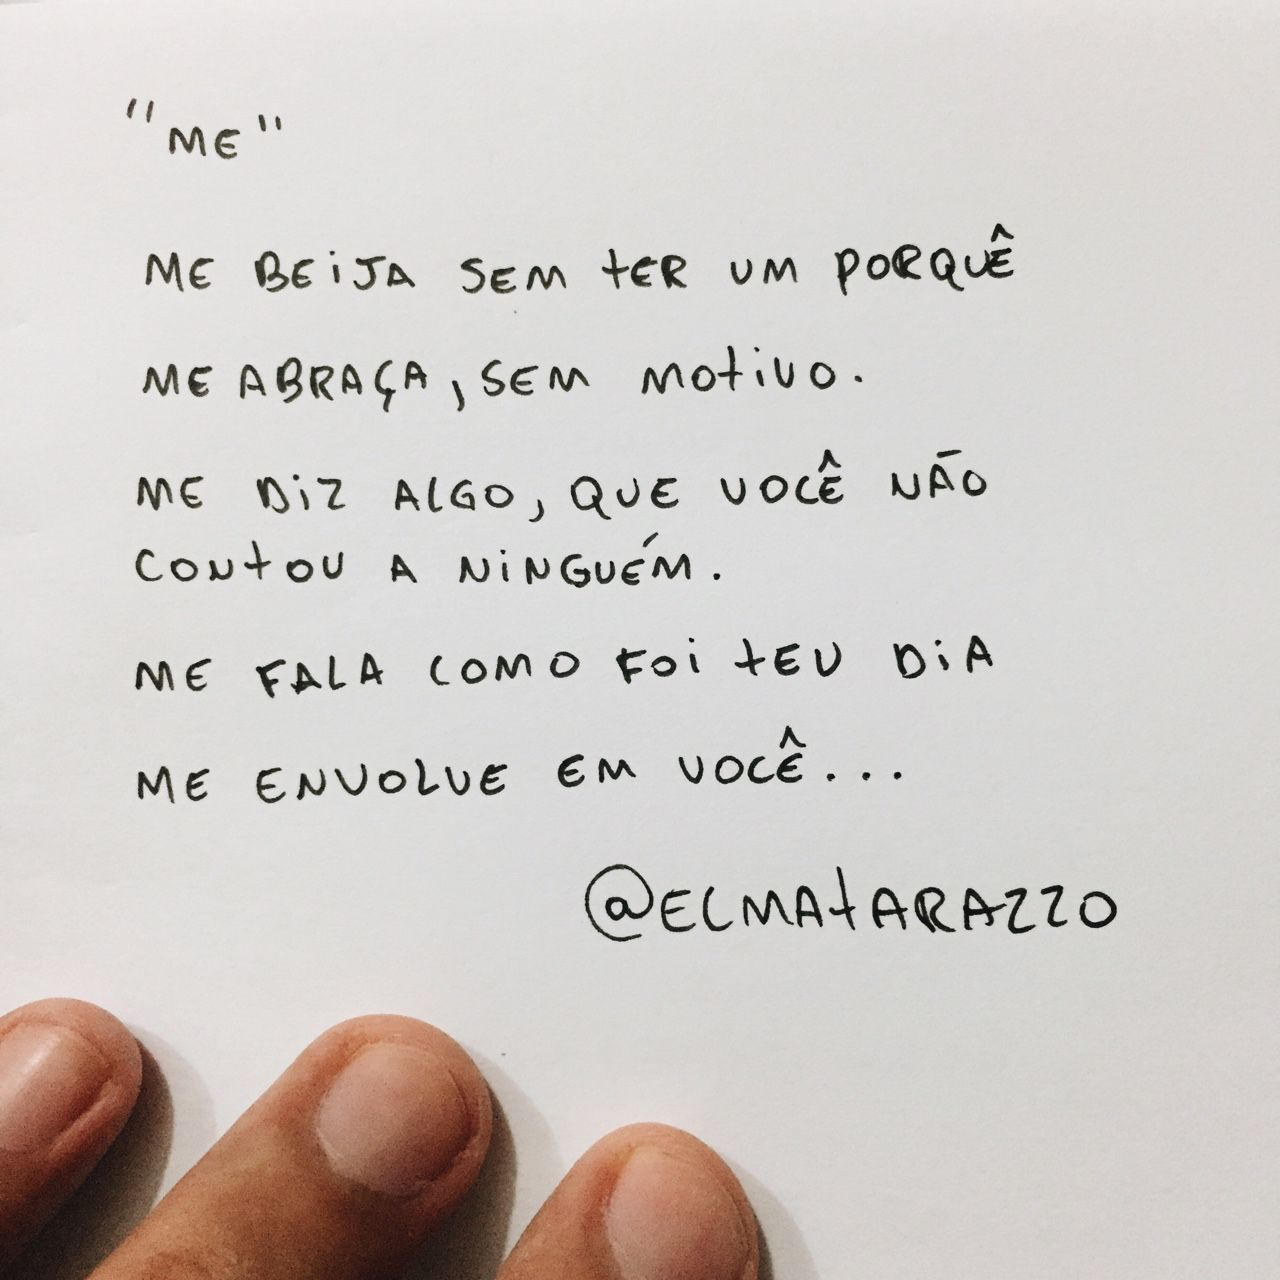 "ME"
ME BEIJA SEM TER UM PORQUÊ
ME ABRAÇA, SEM MOTIVO.
ME DIZ ALGO, QUE VOCÊ NÃO
CONTOU A NINGUÉM.
ME FALA COMO FOI TEU DIA
ME ENVOLVE EM VOCÊ...
@ELMATARAZZO